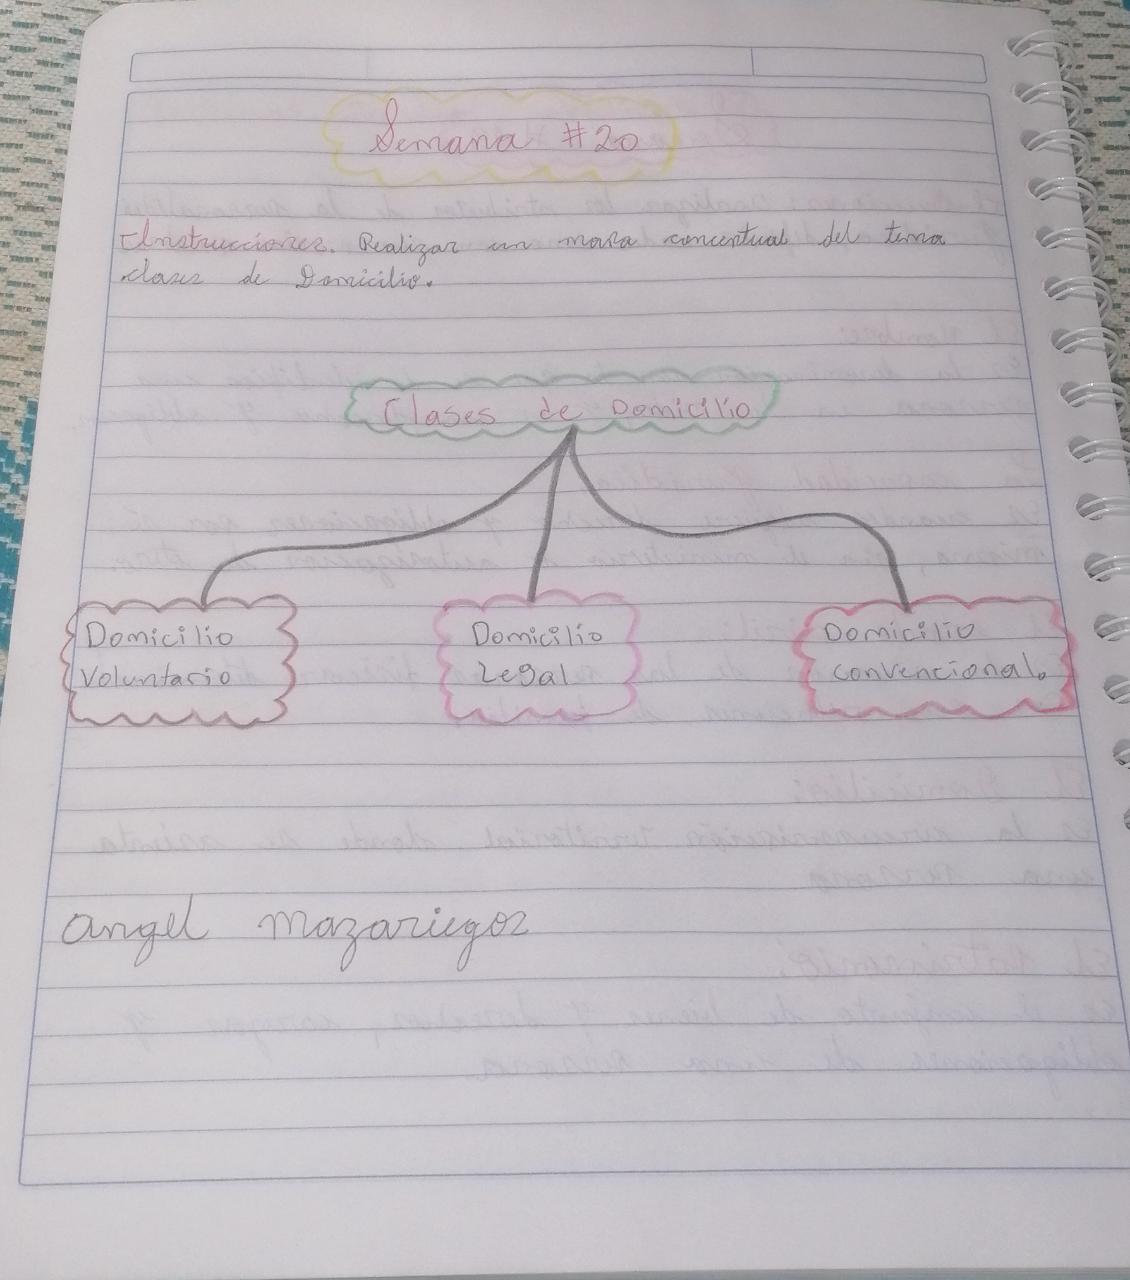 Semana #20
Instrucciones. Realizar un mapa conceptual del tema
clases de Domicilio.
Clases de Domicilio
Domicilio
Voluntario
Domicilio
Legal
Domicilio
convencional.
angel mazariegoz